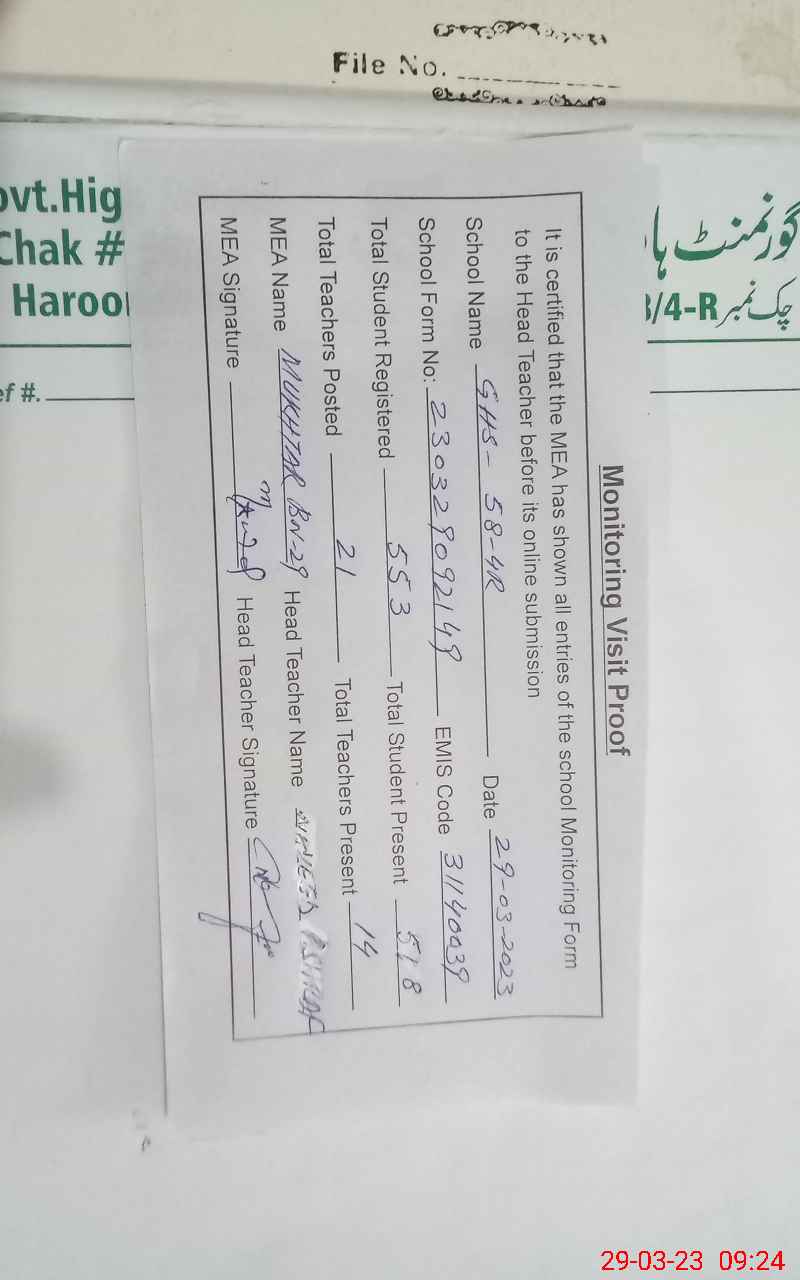 File No.
ovt.Hig
Chak #
Haroo
گورنمنٹ ہا
چک نمبر 3/4-R
ef #.
Monitoring Visit Proof
It is certified that the MEA has shown all entries of the school Monitoring Form
to the Head Teacher before its online submission
School Name GHS- 58-4R Date 29-03-2023
School Form No: 230329092149 EMIS Code 31140039
Total Student Registered 553 Total Student Present 518
Total Teachers Posted 21 Total Teachers Present 14
MEA Name MUKHTAR BN-29 Head Teacher Name ASHRAF
MEA Signature Head Teacher Signature
29-03-23 09:24